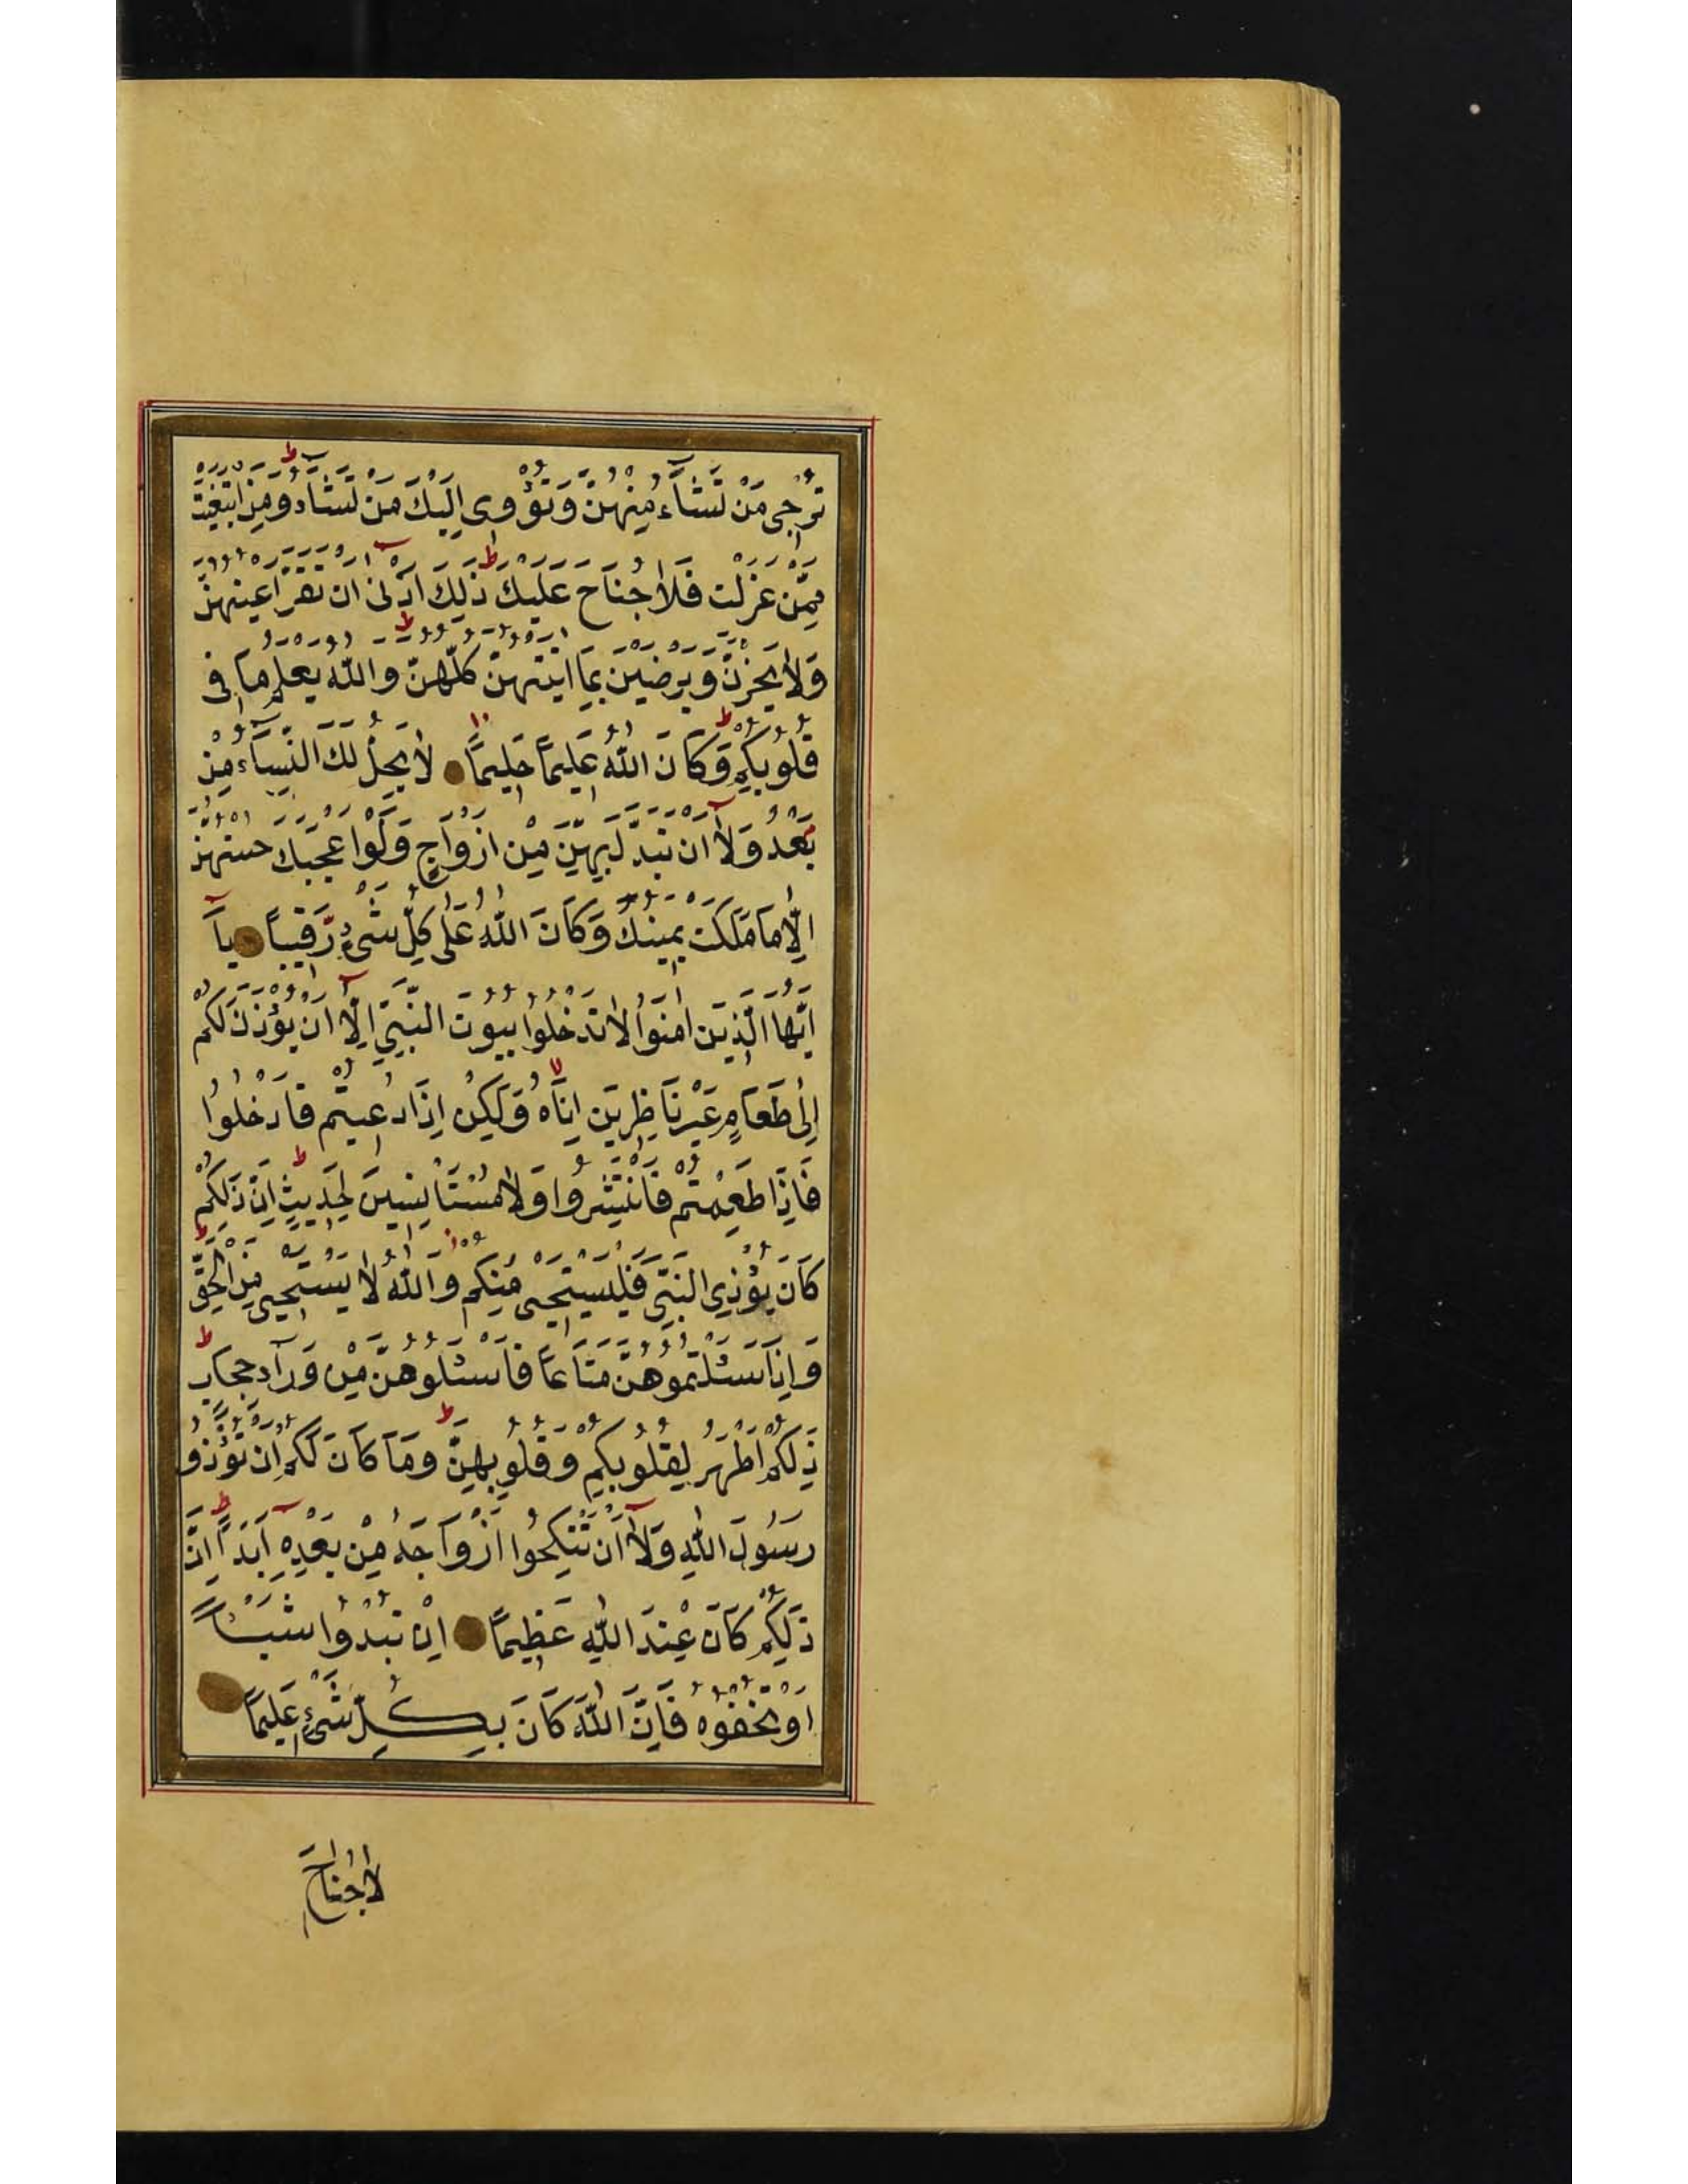 تُرْجِى مَنْ تَشَآءُ مِنْهُنَّ وَتُؤْوِى اِلَيْكَ مَنْ تَشَآءُ وَمَنِ ابْتَغَيْتَ
مِمَّنْ عَزَلْتَ فَلَا جُنَاحَ عَلَيْكَ ذٰلِكَ اَدْنٰى اَنْ تَقَرَّ اَعْيُنُهُنَّ
وَلَا يَحْزَنَّ وَيَرْضَيْنَ بِمَا اٰتَيْتَهُنَّ كُلُّهُنَّ وَاللّٰهُ يَعْلَمُ مَا فِى
قُلُوبِكُمْ وَكَانَ اللّٰهُ عَلِيمًا حَلِيمًا لَا يَحِلُّ لَكَ النِّسَآءُ مِنْ
بَعْدُ وَلَآ اَنْ تَبَدَّلَ بِهِنَّ مِنْ اَزْوَاجٍ وَلَوْ اَعْجَبَكَ حُسْنُهُنَّ
اِلَّا مَا مَلَكَتْ يَمِينُكَ وَكَانَ اللّٰهُ عَلٰى كُلِّ شَىْءٍ رَّقِيبًا يَآ
اَيُّهَا الَّذِينَ اٰمَنُوا لَا تَدْخُلُوا بُيُوتَ النَّبِىِّ اِلَّآ اَنْ يُؤْذَنَ لَكُمْ
اِلٰى طَعَامٍ غَيْرَ نَاظِرِينَ اِنَاهُ وَلٰكِنْ اِذَا دُعِيتُمْ فَادْخُلُوا
فَاِذَا طَعِمْتُمْ فَانْتَشِرُوا وَلَا مُسْتَاْنِسِينَ لِحَدِيثٍ اِنَّ ذٰلِكُمْ
كَانَ يُؤْذِى النَّبِىَّ فَيَسْتَحْيِى مِنْكُمْ وَاللّٰهُ لَا يَسْتَحْيِى مِنَ الْحَقِّ
وَاِذَا سَئَلْتُمُوهُنَّ مَتَاعًا فَاسْئَلُوهُنَّ مِنْ وَرَآءِ حِجَابٍ
ذٰلِكُمْ اَطْهَرُ لِقُلُوبِكُمْ وَقُلُوبِهِنَّ وَمَا كَانَ لَكُمْ اَنْ تُؤْذُو
رَسُولَ اللّٰهِ وَلَآ اَنْ تَنْكِحُوا اَزْوَاجَهُ مِنْ بَعْدِهِ اَبَدًا اِنَّ
ذٰلِكُمْ كَانَ عِنْدَ اللّٰهِ عَظِيمًا اِنْ تُبْدُوا شَيْئًا
اَوْ تُخْفُوهُ فَاِنَّ اللّٰهَ كَانَ بِكُلِّ شَىْءٍ عَلِيمًا
لَا جُنَاحَ